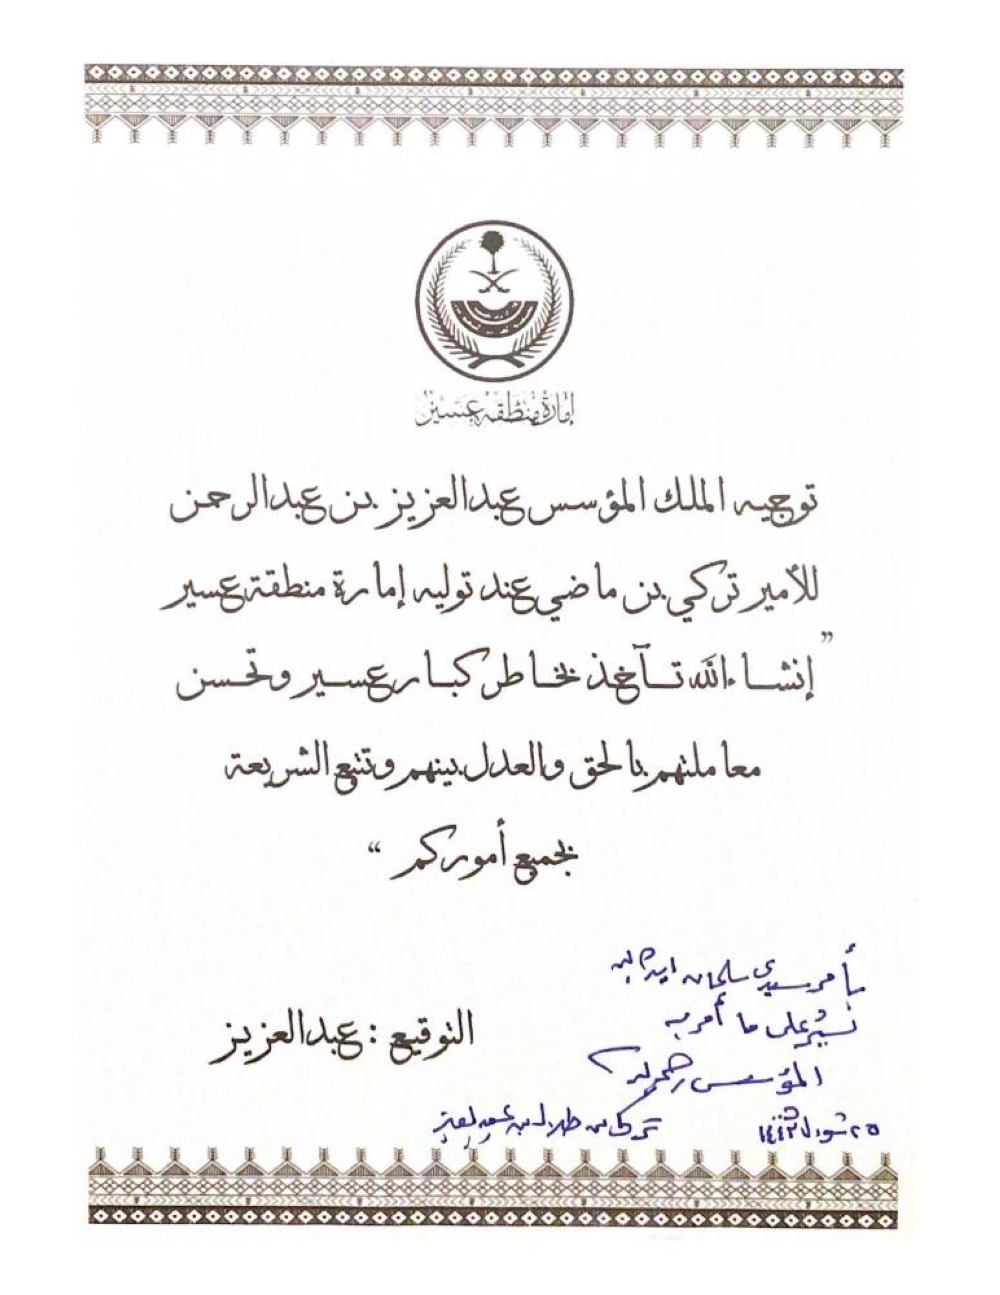 إمارة منطقة عسير
توجيه الملك المؤسس عبدالعزيز بن عبدالرحمن
للأمير تركي بن ماضي عند توليه إمارة منطقة عسير
”إنشاءالله تآخذ بخاطر كبار عسير وتحسن
معاملتهم بالحق والعدل بينهم وتتبع الشريعة
بجميع أموركم“
التوقيع : عبدالعزيز
بأمر سيدي سلمان أيده الله
نسير على ما أمر به
المؤسس رحمه الله
تركي بن طلال بن عبدالعزيز
٢٥ شوال